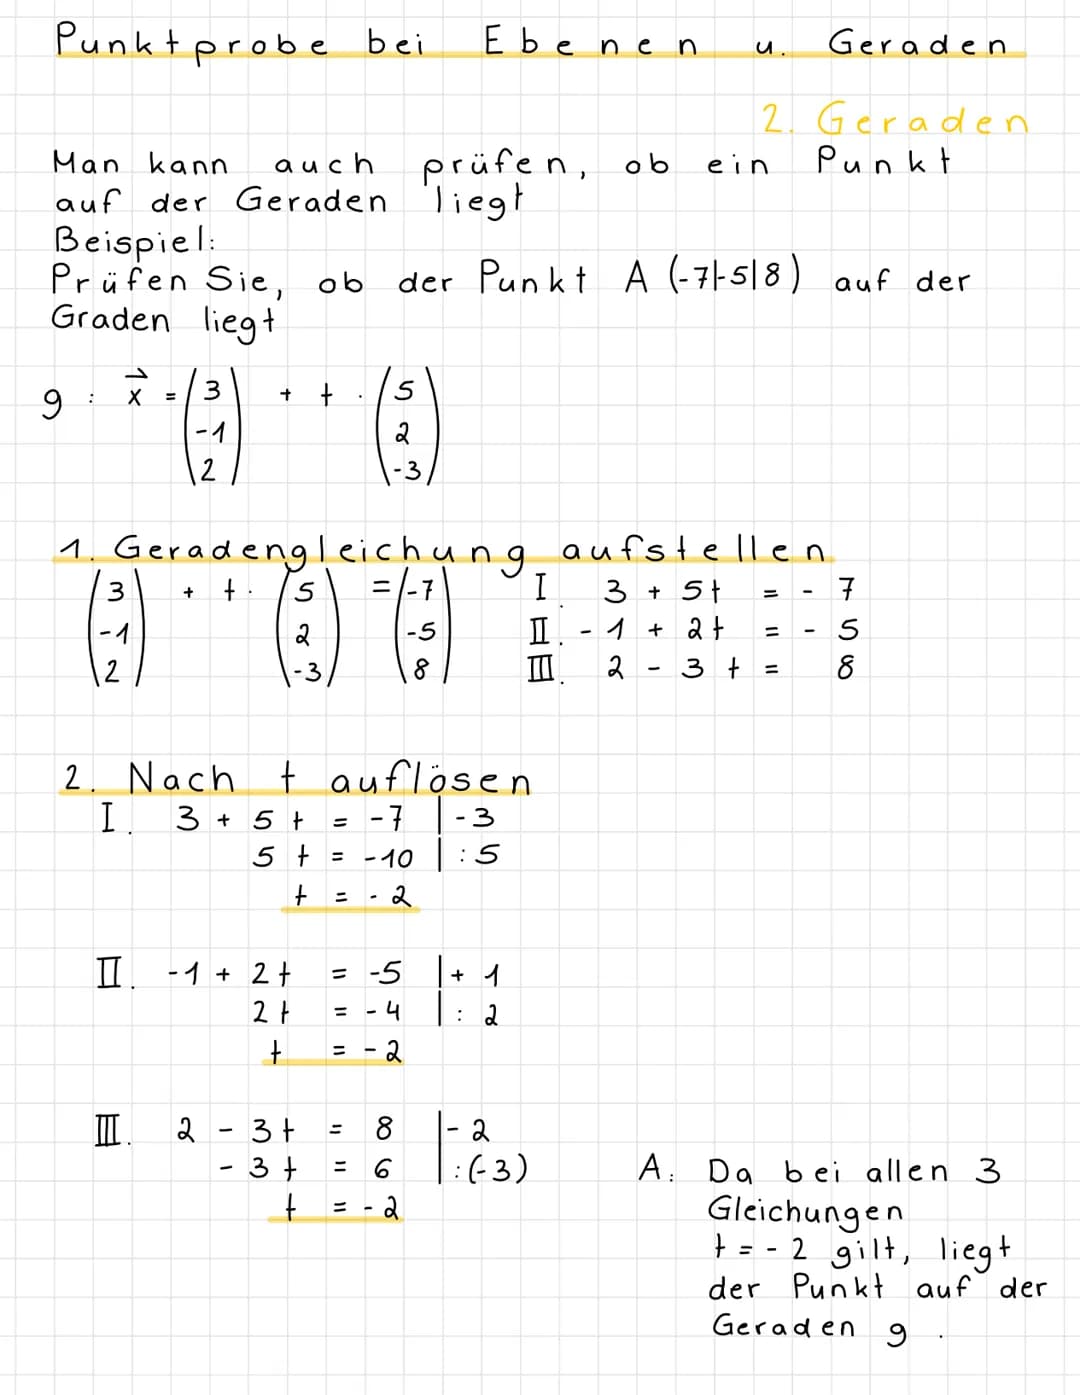 Punktprobe bei Ebenen u. Geraden
2. Geraden
Man kann auch prüfen, ob ein Punkt
auf der Geraden liegt
Beispiel:
Prüfen Sie, ob der Punkt A (-7|-5|8) auf der
Graden liegt
g : x⃗ = (3 -1 2) + t · (5 2 -3)
1. Geradengleichung aufstellen
(3 -1 2) + t · (5 2 -3) = (-7 -5 8)
I 3 + 5t = - 7
II. - 1 + 2t = - 5
III. 2 - 3t = 8
2. Nach t auflösen
I. 3 + 5t = -7 | -3
5t = -10 | :5
t = -2
II. -1 + 2t = -5 | + 1
2t = -4 | : 2
t = -2
III. 2 - 3t = 8 | - 2
- 3t = 6 | :(-3)
t = -2
A: Da bei allen 3
Gleichungen
t = - 2 gilt, liegt
der Punkt auf der
Geraden g .